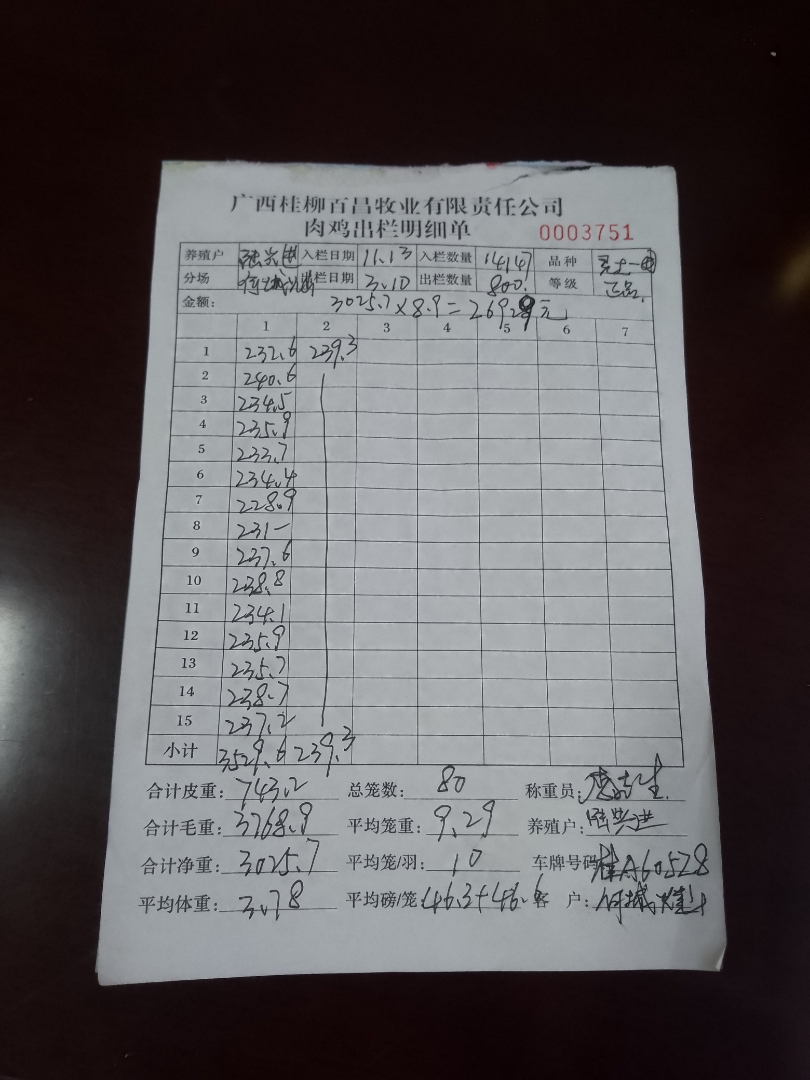 广西桂柳百昌牧业有限责任公司
肉鸡出栏明细单 0003751
养殖户 陆兴进 入栏日期 11.13 入栏数量 14147 品种
分场 栏日期 3.10 出栏数量 800. 等级 正品.
金额: 3025.7×8.9=26929元
1 2 3 4 5 6 7
1 232.6 239.3
2 240.6
3 234.5
4 235.9
5 233.7
6 234.4
7 228.9
8 231—
9 237.6
10 238.8
11 234.1
12 235.9
13 235.7
14 238.7
15 237.2
小计 3529.6 239.3
合计皮重: 743.2 总笼数: 80 称重员:
合计毛重: 3768.9 平均笼重: 9.29 养殖户: 陆兴进
合计净重: 3025.7 平均笼/羽: 10 车牌号码 桂A60528
平均体重: 3.78 平均磅/笼: 46.3+46.6 客 户: